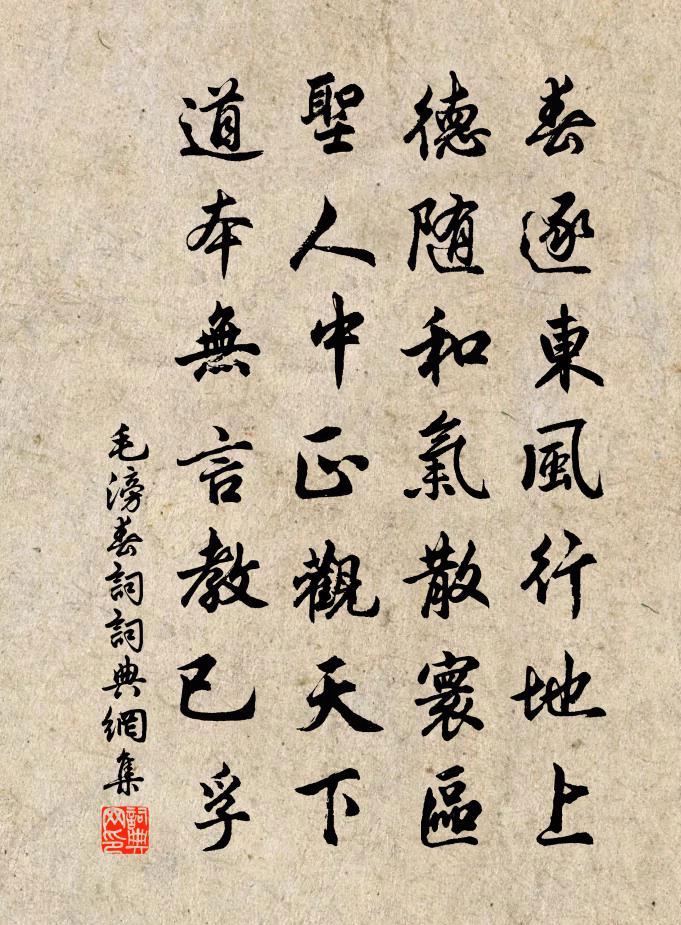 春逐東風行地上
德随和氣散寰區
聖人中正觀天下
道本無言教已孚
毛滂春詞詞典網集
詞典网印